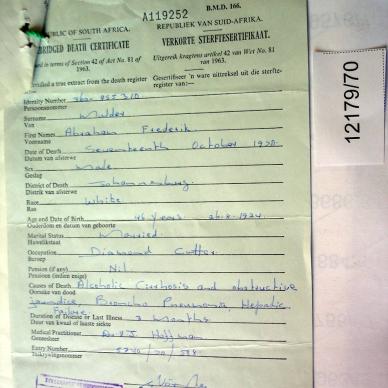 A119252
B.M.D. 166.
PUBLIC OF SOUTH AFRICA.
REPUBLIEK VAN SUID-AFRIKA.
BRIDGED DEATH CERTIFICATE
VERKORTE STERFTESERTIFIKAAT.
in terms of Section 42 of Act No. 81 of 1963.
Uitgereik kragtens artikel 42 van Wet No. 81 van 1963.
a true extract from the death register
Gesertifiseer 'n ware uittreksel uit die sterfte-
register van:—
Identity Number
Persoonsnommer
Surname Mulder
Van
First Names Abraham Frederik
Voorname
Date of Death Seventeenth October 1970
Datum van afsterwe
Sex Male
Geslag
District of Death Johannesburg
Distrik van afsterwe
Race White
Ras
Age and Date of Birth 46 years 26.8.1924
Ouderdom en datum van geboorte
Marital Status Married
Huwelikstaat
Occupation Diamond Cutter
Beroep
Pension (if any) Nil
Pensioen (indien enige)
Causes of Death Alcoholic Cirrhosis and obstructive
Oorsake van dood
jaundice, Broncho Pneumonia, Hepatic
Failure
Duration of Disease or Last Illness 2 Months
Duur van kwaal of laaste siekte
Medical Practitioner Hoffman
Geneesheer
Entry Number
Inskrywingsnommer
12179/70